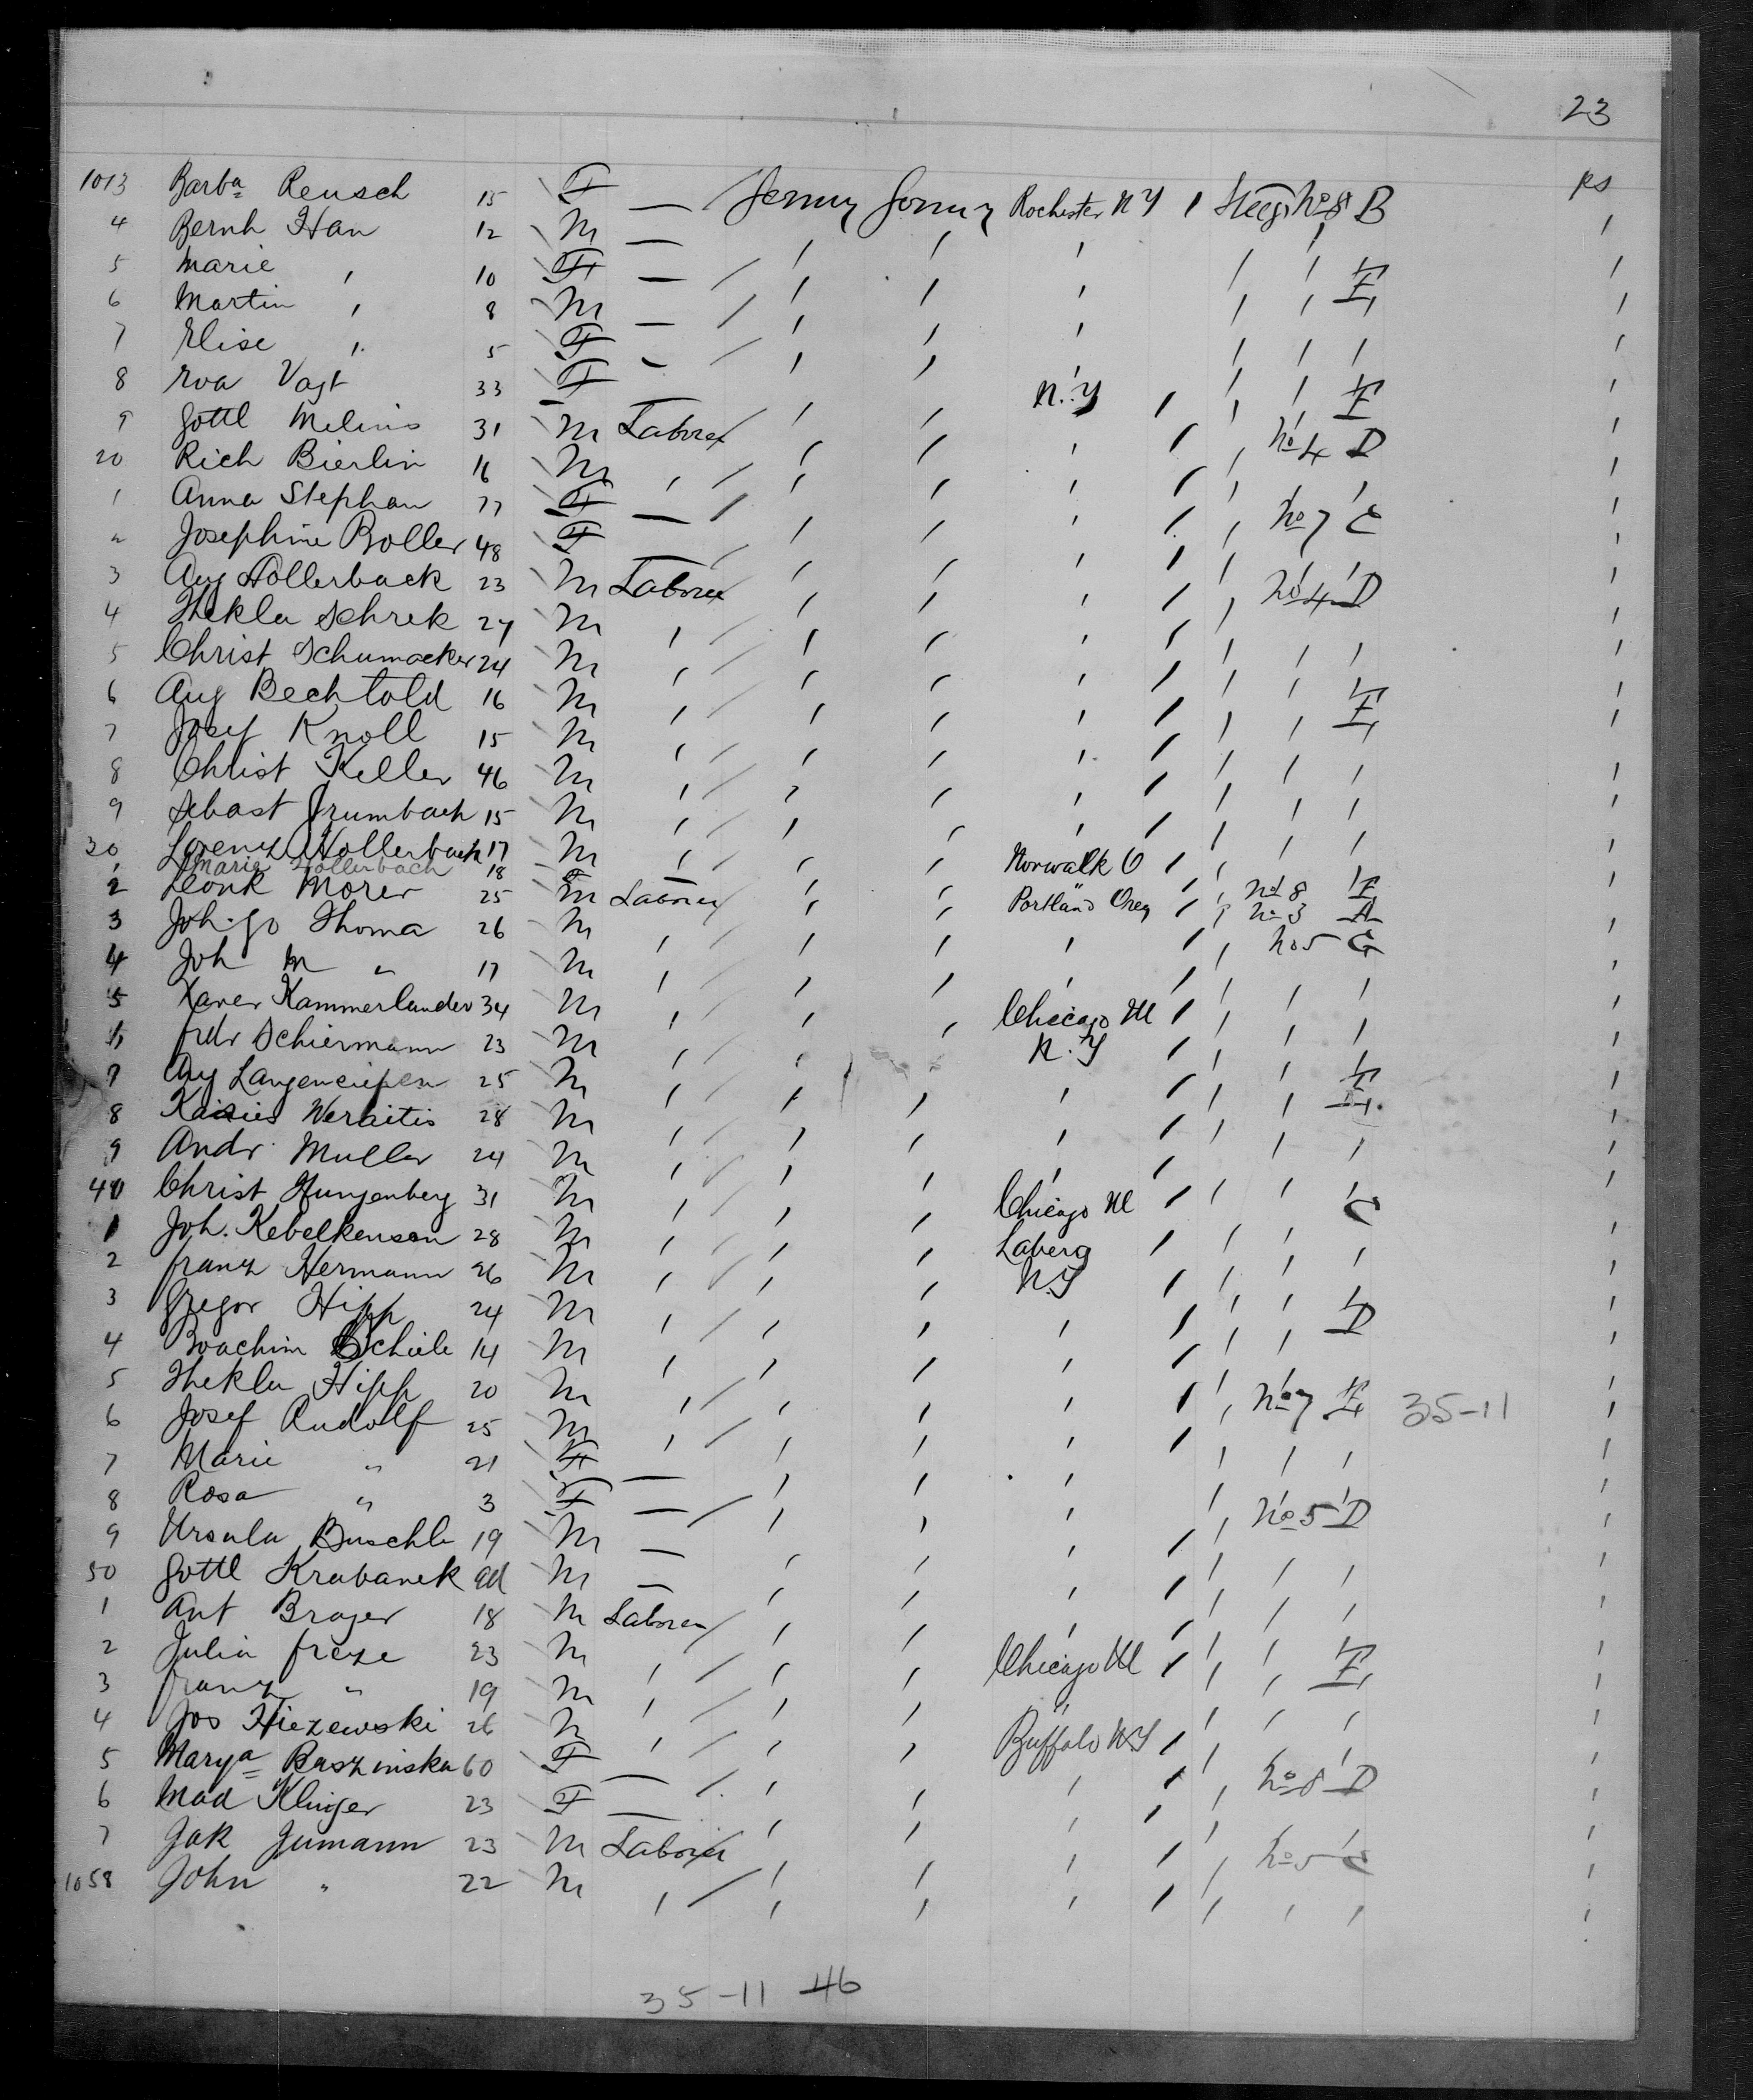 23
1013 Barba Reusch 15 F — / Germy Germy Rochester N Y / Steeg No 8 B ps
4 Bernh Han 12 M —
5 Marie " 10 F — E
6 Martin " 8 M —
7 Elise " 5 F —
8 Eva Vagt 33 F — N.Y E
9 Gottl Melinis 31 M Laborer No 4 D
20 Rich Bierlin 16 M "
1 Anna Stephan 77 F — No 7 C
2 Josephine Boller 48 F —
3 Aug Hollerback 23 M Laborer No 4 D
4 Thekla Schrek 27 M "
5 Christ Schumacker 24 M "
6 Aug Bechtold 16 M " E
7 Josef Knoll 15 M "
8 Christ Keller 46 M "
9 Sebast Grumbach 15 M "
30 Lorenz Hollerbach 17 M " Norwalk O
1 Marie Hollerbach 18 F — " No 8 E
2 Leonk Morer 25 M Laborer Portland Oreg No 3 A
3 Joh. Go Thoma 26 M " " No 5 C
4 Joh M " 17 M "
5 Xaver Kammerlander 34 M " Chicago Ill
6 Fredr Schiermann 23 M " N.Y
7 Aug Langenciepen 25 M " E
8 Kaisies Weraitis 28 M "
9 Andr Muller 24 M "
40 Christ Hungenberg 31 M " Chicago Ill C
1 Joh. Kebelkenson 28 M " Laberg
2 Franz Hermann 26 M " N.Y
3 Gregor Hipp 24 M " D
4 Boachim Schiele 14 M "
5 Thekla Hipp 20 M " No 7 E 35-11
6 Josef Rudolf 25 M "
7 Marie " 21 F —
8 Rosa " 3 F — No 5 D
9 Ursula Buschle 19 M —
50 Gottl Krabanek ad M —
1 Ant Brager 18 M Laborer
2 Julia Freze 23 M " Chicago Ill E
3 Franz " 19 M " "
4 Jos Hiezewski 26 M " Buffalo N.Y
5 Marya Baszinska 60 F — " No 8 D
6 Mad Klinger 23 F — "
7 Jak Jumann 23 M Laborer " No 5 C
1058 John " 22 M " "
35-11 46